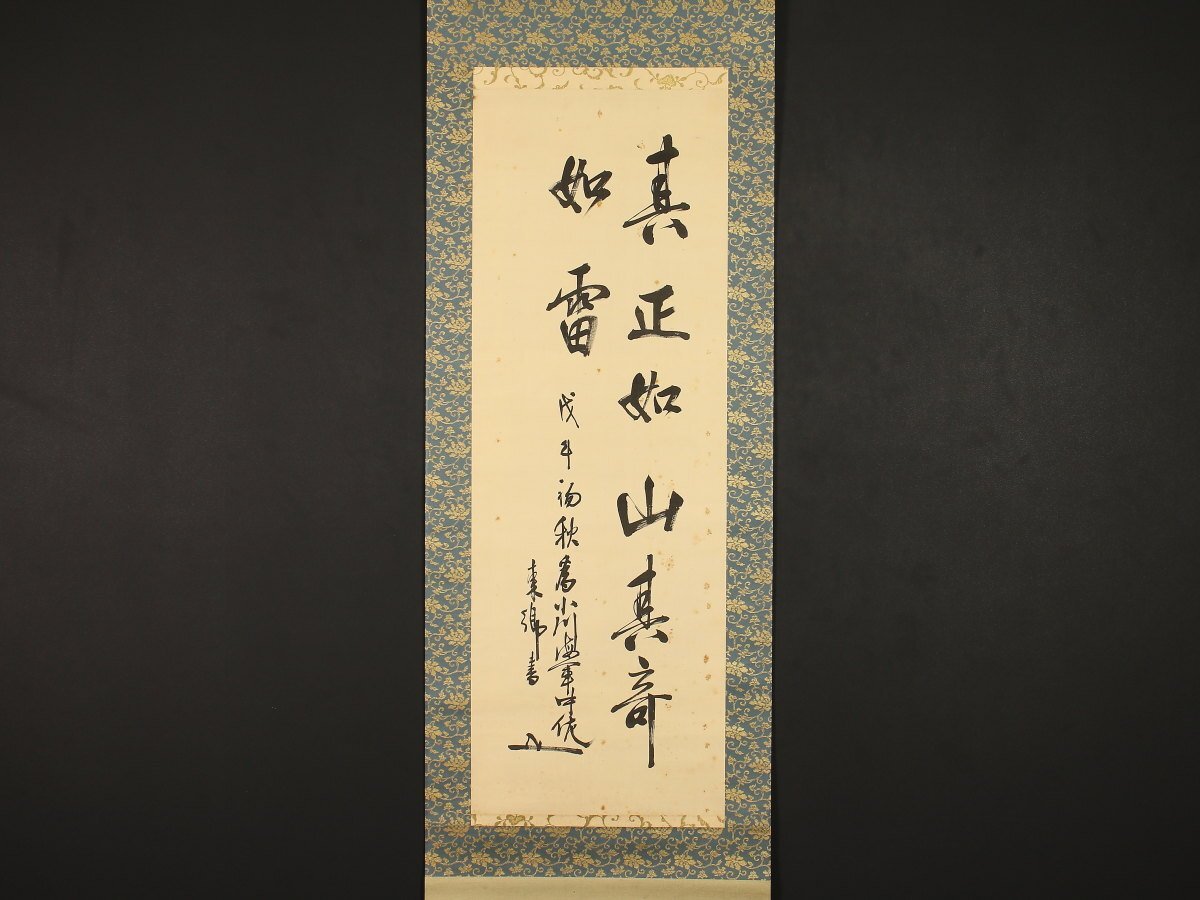 真正如山真奇
如雷 戊午初秋為小川海軍中佐
東郷書